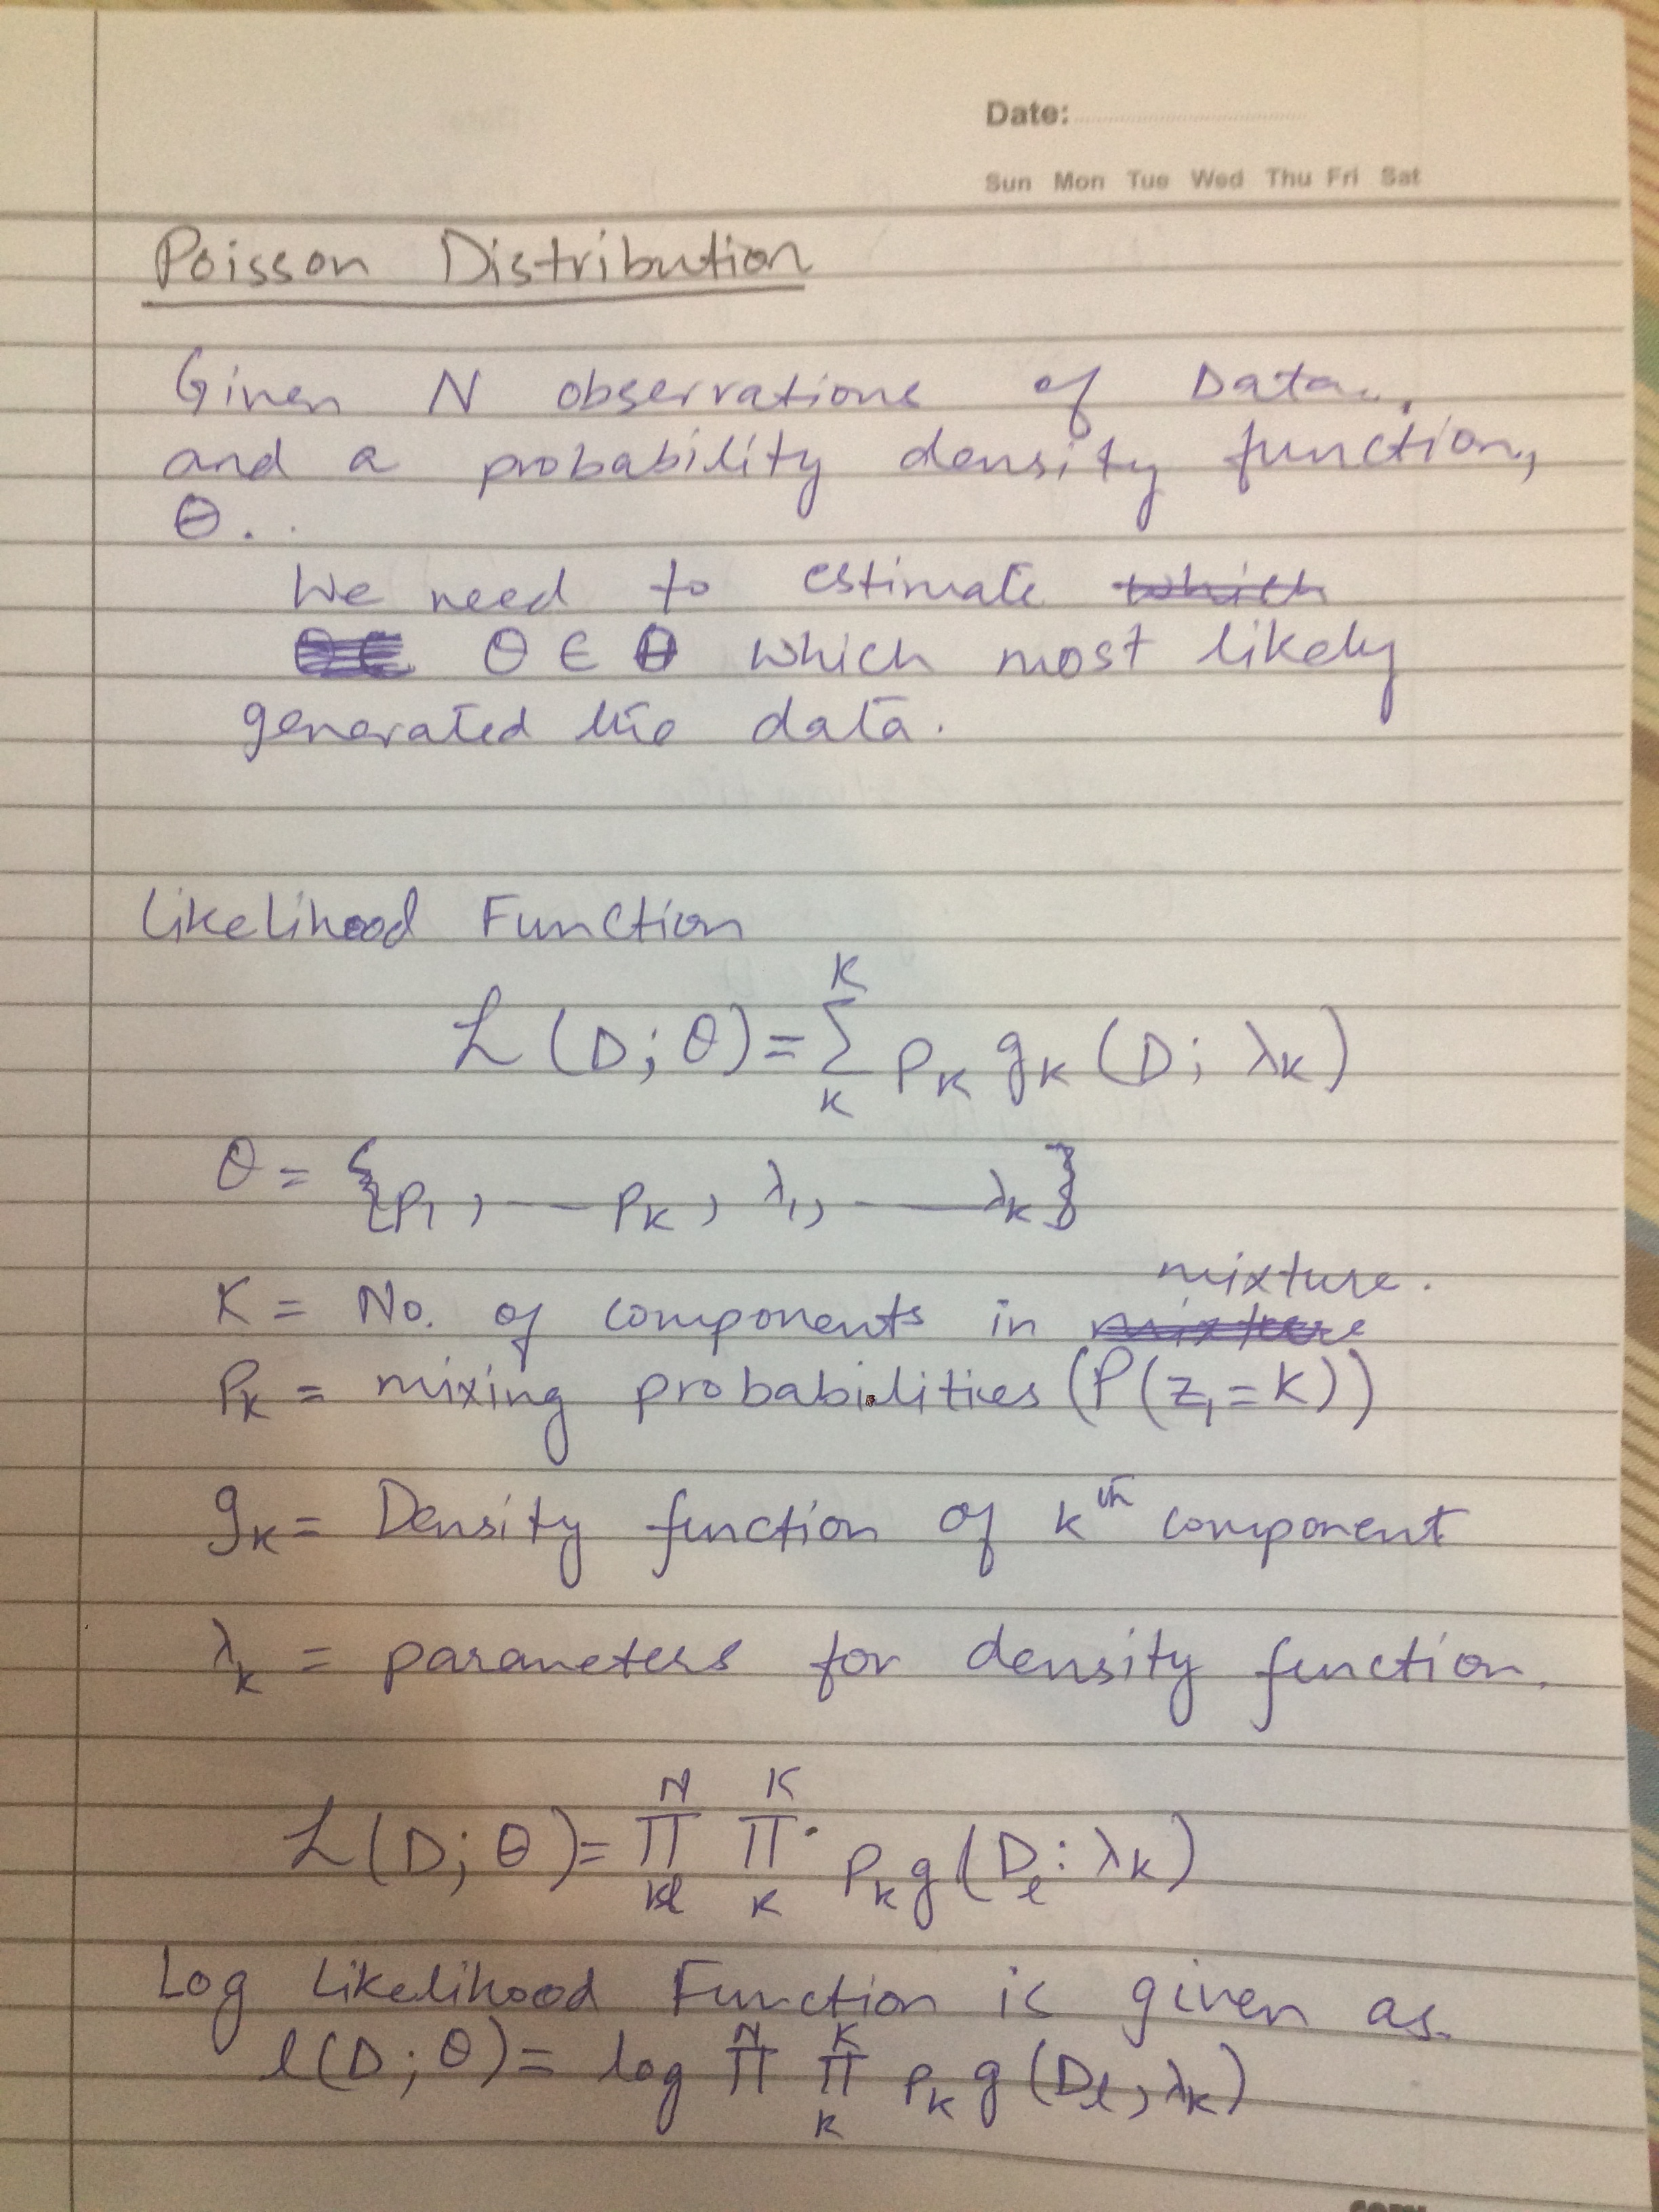 Date:
Sun Mon Tue Wed Thu Fri Sat
Poisson Distribution
Given N observations of Data..,
and a probability density function,
Θ.
We need to estimate which
θ ∈ Θ which most likely
generated the data.
Likelihood Function
ℒ(D; θ) = Σ_K^K P_K g_K (D; λ_K)
θ = {P_1, --- P_K, λ_1, --- λ_K}
mixture.
K = No. of components in mixture
P_K = mixing probabilities (P(z_1 = K))
g_K = Density function of k^th component
λ_k = parameters for density function.
ℒ(D; θ) = Π_l^N Π_K^K P_K g(D_l : λ_K)
Log Likelihood Function is given as.
l(D; θ) = log Π^N Π_K^K P_K g(D_l, λ_K)